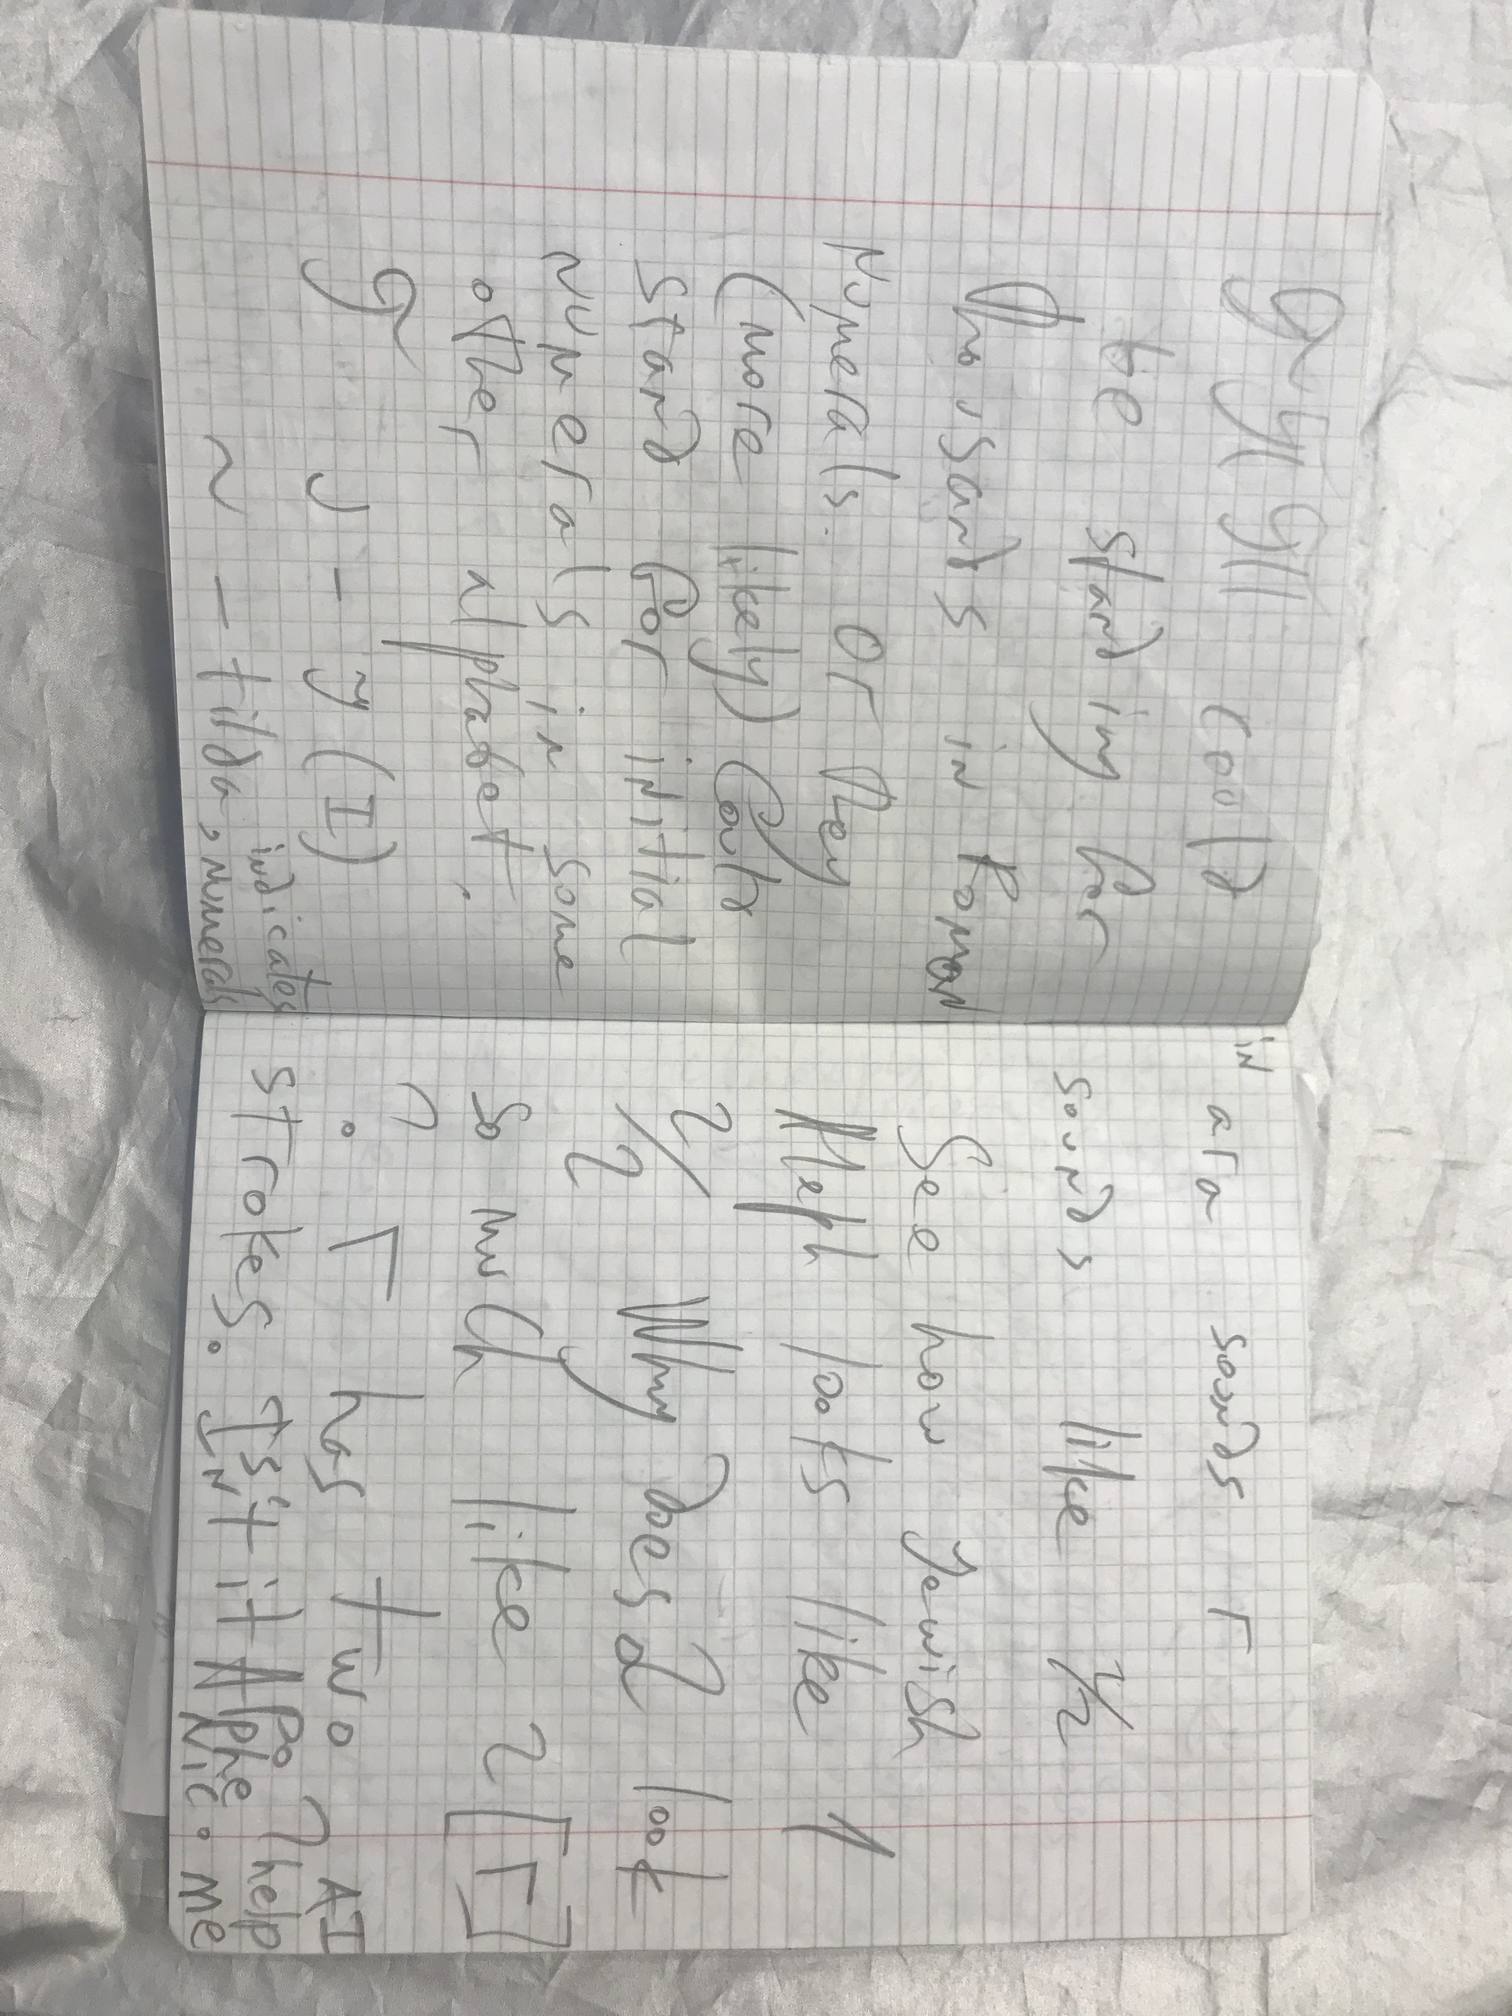 could
be standing for
Thousands in Roman
Numerals. Or They
(more likely) Could
stand for initial
numerals in some
other alphabet.
J - y (I)
indicates
~ - tilda, numerals
in ara sounds Γ
sounds like 1/2
See how Jewish
Aleph looks like 1
2/2 Why does 2 look
so much like 2 [Γ]
? Γ has two
strokes. Is it
AI
help
me